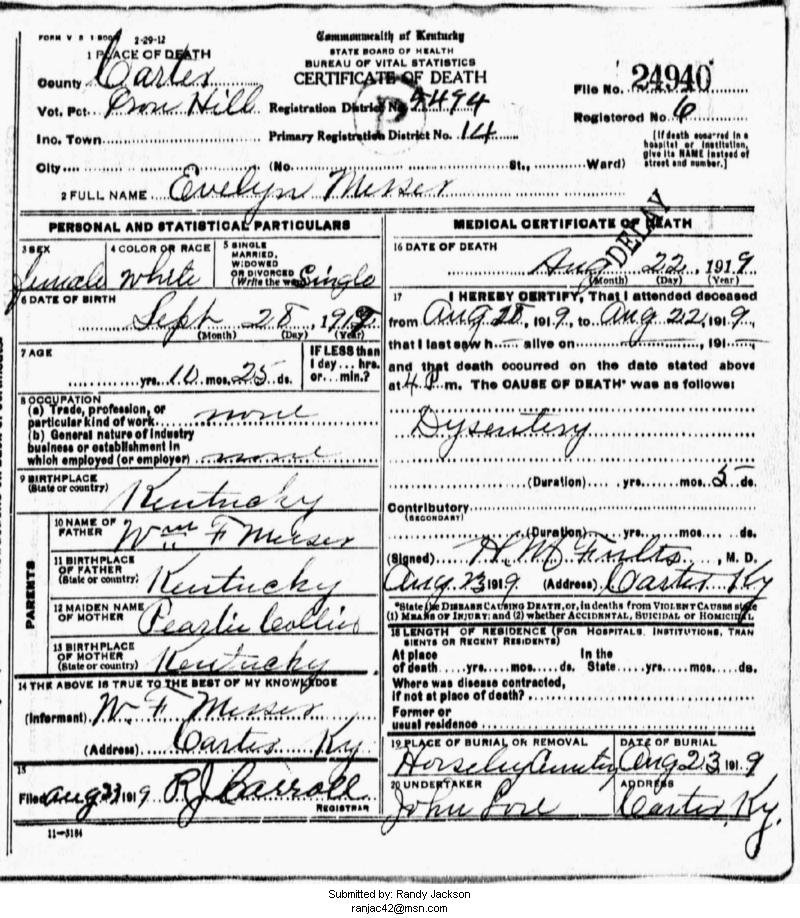 FORM V S 1 2-29-12
Commonwealth of Kentucky
STATE BOARD OF HEALTH
BUREAU OF VITAL STATISTICS
CERTIFICATE OF DEATH
1 PLACE OF DEATH
County Carter
Vot. Pct. Iron Hill
Inc. Town
City (No. St., Ward)
Registration District No. 5494
Primary Registration District No. 14
File No. 24940
Registered No. 6
[If death occurred in a hospital or institution, give its NAME instead of street and number.]
2 FULL NAME Evelyn Messer
PERSONAL AND STATISTICAL PARTICULARS
3 SEX
female
4 COLOR OR RACE
White
5 SINGLE
MARRIED,
WIDOWED
OR DIVORCED
(Write the word) Single
6 DATE OF BIRTH
Sept 28, 191
(Month) (Day) (Year)
7 AGE
yrs. 10 mos. 25 ds.
IF LESS than
1 day ... hrs.
or ... min.?
8 OCCUPATION
(a) Trade, profession, or
particular kind of work none
(b) General nature of industry
business or establishment in
which employed (or employer) none
9 BIRTHPLACE
(State or country) Kentucky
PARENTS
10 NAME OF
FATHER Wm F Messer
11 BIRTHPLACE
OF FATHER
(State or country) Kentucky
12 MAIDEN NAME
OF MOTHER Pearlie Collins
13 BIRTHPLACE
OF MOTHER
(State or country) Kentucky
14 THE ABOVE IS TRUE TO THE BEST OF MY KNOWLEDGE
(Informant) W. F. Messer
(Address) Carter Ky
15
Filed Aug 23 1919 R J Carroll
REGISTRAR
11-3184
MEDICAL CERTIFICATE OF DEATH
DELAY
16 DATE OF DEATH
Aug 22, 1919
(Month) (Day) (Year)
17 I HEREBY CERTIFY, That I attended deceased
from Aug 18, 1919, to Aug 22, 1919
that I last saw h— alive on —, 191—
and that death occurred on the date stated above
at 4 P m. The CAUSE OF DEATH* was as follows:
Dysentery
(Duration) yrs. mos. 5 ds.
Contributory
(SECONDARY)
(Duration) yrs. mos. ds.
(Signed) H. M. Fults, M. D.
Aug 23 1919 (Address) Carter Ky
*State the DISEASE CAUSING DEATH, or, in deaths from VIOLENT CAUSES state
(1) MEANS OF INJURY; and (2) whether ACCIDENTAL, SUICIDAL or HOMICIDAL
18 LENGTH OF RESIDENCE (FOR HOSPITALS, INSTITUTIONS, TRAN
SIENTS OR RECENT RESIDENTS)
At place In the
of death yrs. mos. ds. State yrs. mos. ds.
Where was disease contracted,
if not at place of death?
Former or
usual residence
19 PLACE OF BURIAL OR REMOVAL
DATE OF BURIAL
Aug 23 1919
20 UNDERTAKER
ADDRESS
John Carter, Ky.
Submitted by: Randy Jackson
ranjac42@msn.com